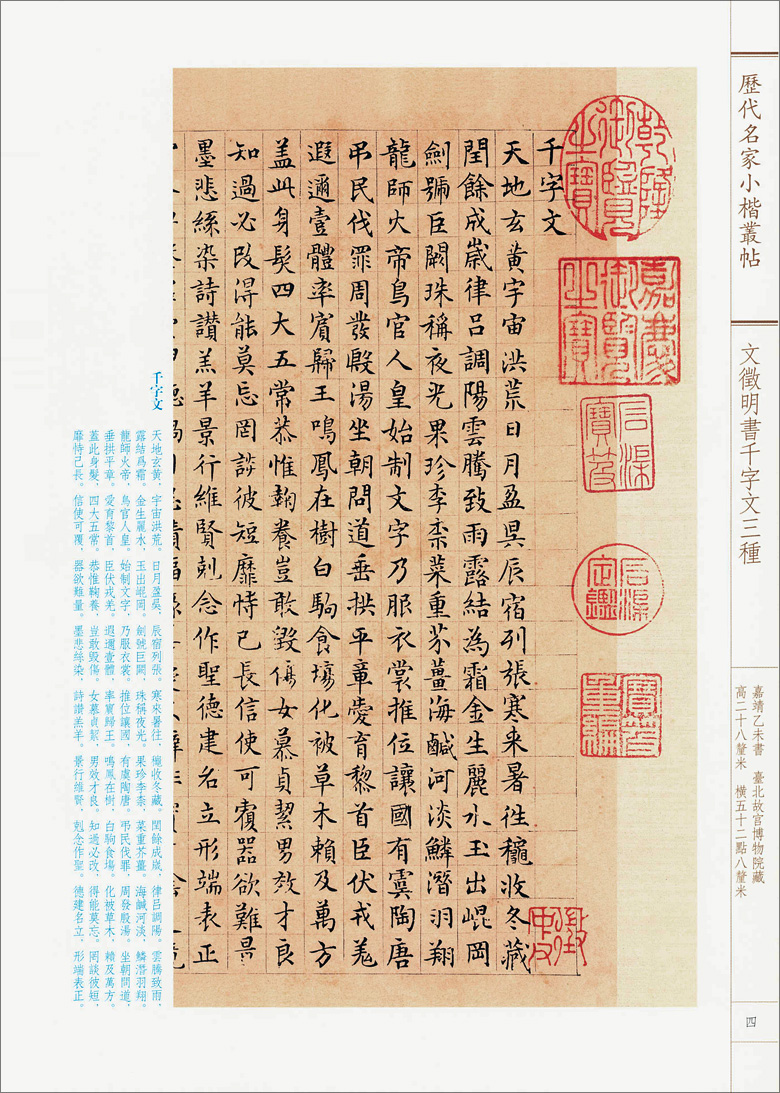 歷代名家小楷叢帖
文徵明書千字文三種
嘉靖乙未書 臺北故宮博物院藏
高二十八釐米 橫五十二點八釐米
四
乾隆御覽之寶
嘉慶御覽之寶
石渠寶笈
石渠定鑑
寶笈重編
千字文
天地玄黃宇宙洪荒日月盈昃辰宿列張寒来暑徃穐收冬藏
閏餘成歲律呂調陽雲騰致雨露結為霜金生麗水玉出崐岡
劍號巨闕珠稱夜光果珍李柰菜重芥薑海鹹河淡鱗潛羽翔
龍師火帝鳥官人皇始制文字乃服衣裳推位讓國有虞陶唐
弔民伐罪周發殷湯坐朝問道垂拱平章愛育黎首臣伏戎羌
遐邇壹體率賓歸王鳴鳳在樹白駒食場化被草木賴及萬方
盖此身髮四大五常恭惟鞠養豈敢毀傷女慕貞絜男效才良
知過必改得能莫忘罔談彼短靡恃己長信使可覆器欲難量
墨悲絲染詩讚羔羊景行維賢剋念作聖德建名立形端表正
千字文
天地玄黃，宇宙洪荒。日月盈昃，辰宿列張。寒來暑往，穐收冬藏。閏餘成歲，律呂調陽。雲騰致雨，
露結爲霜。金生麗水，玉出崐岡。劍號巨闕，珠稱夜光。果珍李柰，菜重芥薑。海鹹河淡，鱗潛羽翔。
龍師火帝，鳥官人皇。始制文字，乃服衣裳。推位讓國，有虞陶唐。弔民伐罪，周發殷湯。坐朝問道，
垂拱平章。愛育黎首，臣伏戎羌。遐邇壹體，率賓歸王。鳴鳳在樹，白駒食場。化被草木，賴及萬方。
蓋此身髮，四大五常。恭惟鞠養，豈敢毀傷。女慕貞絜，男效才良。知過必改，得能莫忘。罔談彼短，
靡恃己長。信使可覆，器欲難量。墨悲絲染，詩讚羔羊。景行維賢，剋念作聖。德建名立，形端表正。